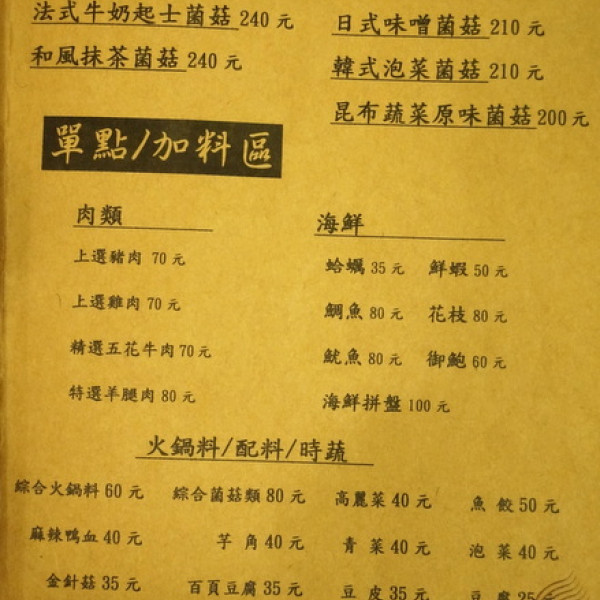 法式牛奶起士菌菇 240 元
日式味噌菌菇 210 元
和風抹茶菌菇 240 元
韓式泡菜菌菇 210 元
昆布蔬菜原味菌菇 200 元
單點/加料區
肉類
上選豬肉 70 元
上選雞肉 70 元
精選五花牛肉 70 元
特選羊腿肉 80 元
海鮮
蛤蠣 35 元 鮮蝦 50 元
鯛魚 80 元 花枝 80 元
魷魚 80 元 御鮑 60 元
海鮮拼盤 100 元
火鍋料/配料/時蔬
綜合火鍋料 60 元 綜合菌菇類 80 元 高麗菜 40 元 魚餃 50 元
麻辣鴨血 40 元 芋角 40 元 青菜 40 元 泡菜 40 元
金針菇 35 元 百頁豆腐 35 元 豆皮 35 元 豆腐